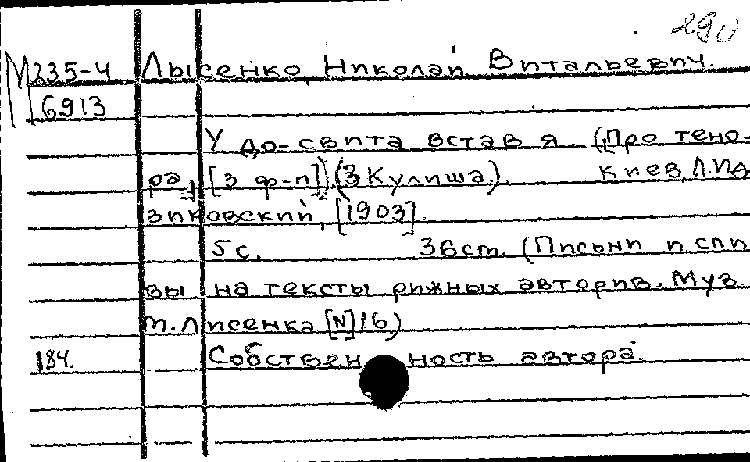 290
М235-4 Лысенко, Николай Витальевич.
6913
У до-свита встав я (Про тено-
ра, [з ф-п]) (З Кулиша). Киев, Л. Ид
зиковский, [1903].
5 с. 36 см. (Письни и спи
вы на тексты рижных авторив. Муз.
М. Лисенка [N] 16)
184. Собствен ность автора.